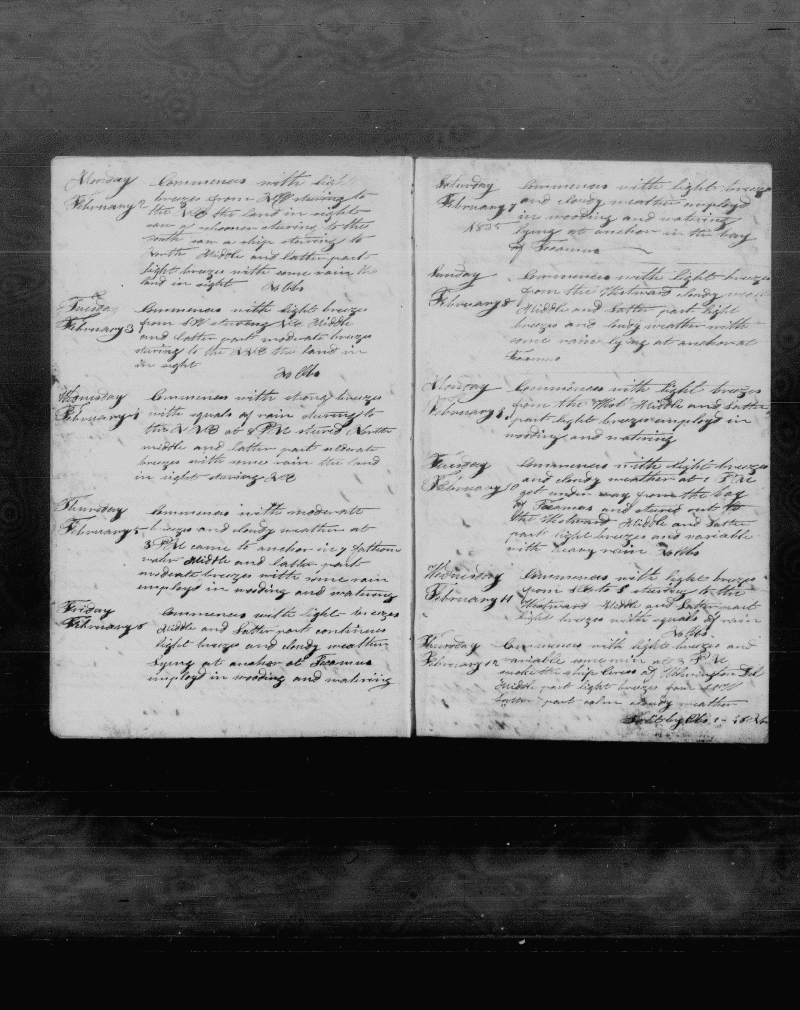 Monday Commences with light
February 2 breezes from steering to
the the land in sight
saw a schooner steering to the
south saw a ship steering to
North Middle and latter part
light breezes with some rain the
land in sight
No Obs
Tuesday Commences with light breezes
February 3 from SW steering Middle
and latter part moderate breezes
steering to the NNE the land in
in sight
No Obs
Commences with strong breezes
February 4 with squals of rain steering to
the NNE at 8 PM stered North
middle and latter part moderate
breezes with some rain the land
in sight stearing
Thursday Commences with moderate
February 5 breezes and cloudy weather at
3 PM came to anchor in 7 fathom
water Middle and latter part
moderate breezes with some rain
employd in wooding and watering
Friday Commences with light breezes
February 6 Middle and Latter part continues
light breezes and cloudy weather
Lying at anchor at Tecamus
imployd in wooding and watering
Saturday Commences with light breezes
February 7 and cloudy weather employd
1835 in wooding and watering
lying at anchor in the bay
of Tecamus
Sunday Commences with light breezes
February 8 from the Westward cloudy
Middle and Latter part light
breezes and cloudy weather with
some rain lying at anchor at
Tecamus
Monday Commences with light breezes
February from the West Middle and Latter
part light breezes employd in
wooding and watering
Tuesday Commences with light breezes
February 10 and cloudy weather at 1 PM
got under way from the bay
of Tecamus and stered out to
the Westward Middle and Latter
part light breezes and variable
with heavy rain No Obs
Wednesday Commences with light breezes
February 11 from to S steering to the
Westward Middle and Latter part
light breezes with squals of rain
No Obs
Thursday Commences with light breezes and
February 12 variable some rain at 3 PM
spoke the ship of Wilmington Del
Middle part light breezes from
Latter part calm cloudy weather
Latt by Obs